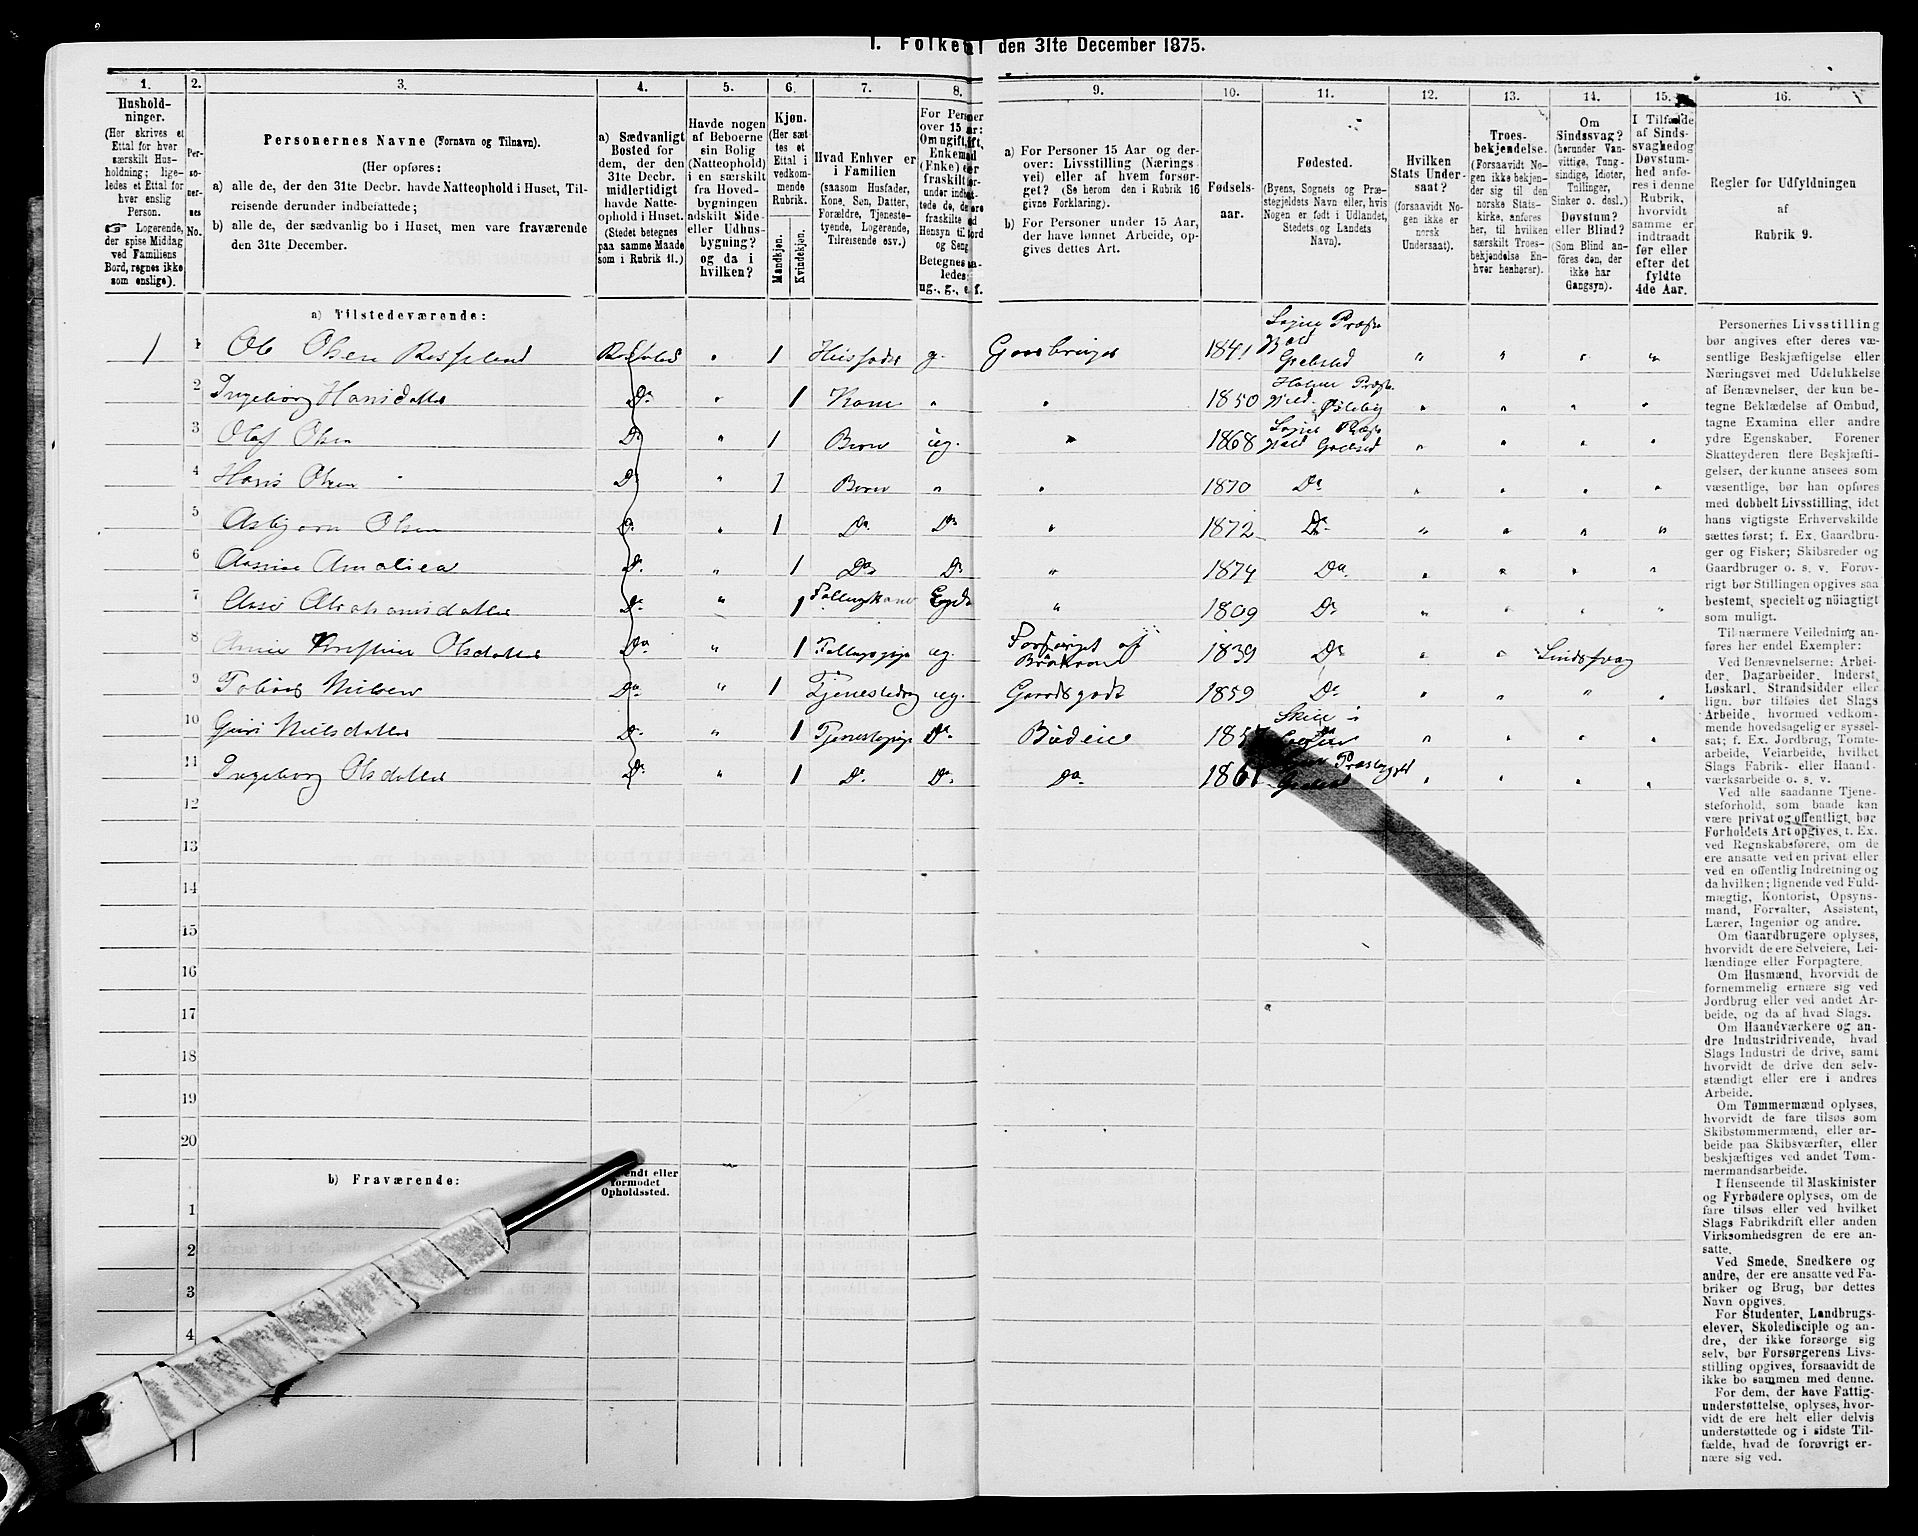 I. Folketal den 31te December 1875.
1. 2. 3. 4. 5. 6. 7. 8. 9. 10. 11. 12. 13. 14. 15. 16.
Hushold-
ninger.
(Her skrives et
Ettal for hver
særskilt Hus-
holdning; lige-
ledes et Ettal for
hver enslig
Person.
☞ Logerende,
der spise Middag
ved Familiens
Bord, regnes ikke
som enslige).
Per-
so-
ner-
nes
No.
Personernes Navne (Fornavn og Tilnavn).
(Her opføres:
a) alle de, der den 31te Decbr. havde Natteophold i Huset, Til-
reisende derunder indbefattede;
b) alle de, der sædvanlig bo i Huset, men vare fraværende
den 31te December.
a) Sædvanligt
Bosted for
dem, der den
31te Decbr.
midlertidigt
havde Natte-
ophold i Huset.
(Stedet betegnes
paa samme Maade
som i Rubrik 11.)
Havde nogen
af Beboerne
sin Bolig
(Natteophold)
i en særskilt
fra Hoved-
bygningen
adskilt Side-
eller Udhus-
bygning?
og da i
hvilken?
Kjøn.
(Her sæt-
tes et
Ettal i
vedkom-
mende
Rubrik.
Mandkjøn.
Kvindekjøn.
Hvad Enhver er
i Familien
(saasom Husfader,
Kone, Søn, Datter,
Forældre, Tjeneste-
tyende, Logerende,
Tilreisende osv.)
For Personer
over 15 aar:
Om ugift, gift,
Enkemand
(Enke) eller
fraskilt
Betegnes saa-
ledes:
ug., g., e. f.
a) For Personer 15 Aar og der-
over: Livsstilling (Nærings
vei) eller af hvem forsør-
get? (Se herom den i Rubrik 16
givne Forklaring).
b) For Personer under 15 Aar,
der have lønnet Arbeide, op-
gives dettes Art.
Fødsels-
aar.
Fødested.
(Byens, Sognets og Præ-
stegjeldets Navn eller, hvis
Nogen er født i Udlandet,
Stedets og Landets
Navn).
Hvilken
Stats Under-
saat?
(forsaavidt No-
gen ikke er
norsk
Undersaat).
Troes-
bekjendelse.
(Forsaavidt No-
gen ikke bekjen-
der sig til den
norske Stats-
kirke, anføres
her, til hvilken
særskilt Troes-
bekjendelse En-
hver henhører).
Om
Sindssvag?
(herunder Van-
vittige, Tung-
sindige, Idioter,
Tullinger,
Sinker o. desl.)
Døvstum?
eller Blind?
(Som Blind an-
føres den, der
ikke har
Gangsyn).
I Tilfælde
af Sinds-
svaghed og
Døvstum-
hed anfø-
res i denne
Rubrik,
hvorvidt
samme er
indtraadt
før eller
efter det
fyldte
4de Aar.
Regler for Udfyldningen
af
Rubrik 9.
a) Tilstedeværende:
1 1 Ole Olsen 1 Husfader g. Gaardbruger 1841
2 Ingeborg Hansdatter Do 1 Kone 1850
3 Olaf Olsen Do 1 ug. 1868
4 Hans Olsen Do 1 1870 Do
5 Asbjørn Olsen Do 1 Do Do 1872 Do
6 Amalia Do 1 Do Do 1874 Do
7 Abrahamsdatter Do 1 1809 Do
8 Olsdatter Do 1 ug. Forsørget af Broderen 1839 Do Sindssvag
9 Tobias Nielsen Do 1 Tjenestedreng ug. Gaardsgodt 1859 Do
10 Guri Nielsdatter Do 1 Tjenestepige Do Budeie
11 Ingeborg Olsdatter Do 1 Do Do Do 1861
12
13
14
15
16
17
18
19
20
b) Fraværende:
endt eller
formodet
Opholdssted.
1
2
3
4
Personernes Livsstilling
bør angives efter deres væ-
sentlige Beskjæftigelse eller
Næringsvei med Udelukkelse
af Benævnelser, der kun be-
tegne Beklædelse af Ombud,
tagne Examina eller andre
ydre Egenskaber. Forener
Skatteyderen flere Beskjæfti-
gelser, der kunne ansees som
væsentlige, bør han opføres
med dobbelt Livsstilling, idet
hans vigtigste Erhvervskilde
sættes først; f. Ex. Gaardbru-
ger og Fisker; Skibsreder og
Gaardbruger o. s. v. Forøv-
rigt bør Stillingen opgives saa
bestemt, specielt og nøiagtigt
som muligt.
Til nærmere Veiledning an-
føres her endel Exempler:
Ved Benævnelserne: Arbei-
der, Dagarbeider, Inderst,
Løskarl, Strandsidder eller
lign. bør tilføies det Slags
Arbeide, hvormed vedkom-
mende hovedsagelig er syssel-
sat; f. Ex. Jordbrug, Tomte-
arbeide, Veiarbeide, hvilket
Slags Fabrik- eller Haand-
værksarbeide o. s. v.
Ved alle saadanne Tjene-
steforhold, som baade kan
være privat og offentligt, bør
Forholdets Art opgives, t. Ex.
ved Regnskabsførere, om de
ere ansatte ved en privat eller
ved en offentlig Indretning og
da hvilken; lignende ved Fuld-
mægtig, Kontorist, Opsyns-
mand, Forvalter, Assistent,
Lærer, Ingeniør og andre.
Om Gaardbrugere oplyses,
hvorvidt de ere Selveiere, Lei-
lændinge eller Forpagtere.
Om Husmænd, hvorvidt de
fornemmelig ernære sig ved
Jordbrug eller ved andet Ar-
beide, og da af hvad Slags.
Om Haandværkere og an-
dre Industridrivende, hvad
Slags Industri de drive, samt
hvorvidt de drive den selv-
stændigt eller ere i andres
Arbeide.
Om Tømmermænd oplyses,
hvorvidt de fare tilsøs som
Skibstømmermænd, eller ar-
beide paa Skibsværfter, eller
beskjæftiges ved andet Tøm-
mermandsarbeide.
I Henseende til Maskinister
og Fyrbødere oplyses, om de
fare tilsøs eller ved hvilket
Slags Fabrikdrift eller anden
Virksomhedsgren de ere an-
satte.
Ved Smede, Snedkere og
andre, der ere ansatte ved Fa-
briker og Brug, bør dettes
Navn opgives.
For Studenter, Landbrugs-
elever, Skoledisciple og an-
dre, der ikke forsørge sig
selv, bør Forsørgerens Livs-
stilling opgives, forsaavidt de
ikke bo sammen med denne.
For dem, der have Fattig-
understøttelse, oplyses, hvor-
vidt de ere helt eller delvis
understøttede og i sidste Til-
fælde, hvad de forøvrigt er-
nære sig ved.